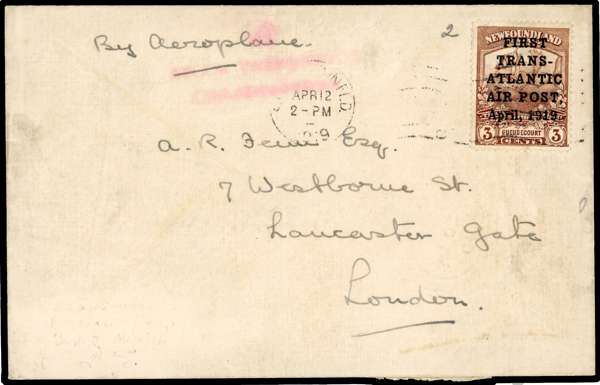 By Aeroplane.
2
NEWFOUNDLAND
FIRST
TRANS-
ATLANTIC
AIR POST,
April, 1919.
3 GUEUDECOURT 3
CENTS
NFLD.
APR 12
2-PM
A. R. Esq.
7 Westborne St.
Lancaster Gate
London.